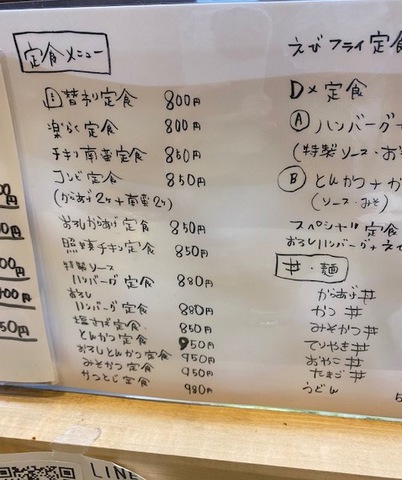 定食メニュー
日替り定食 800円
楽らく定食 800円
チキン南蛮定食 850円
コンビ定食 850円
(からあげ2ケ+南蛮2ケ)
おろしからあげ定食 850円
照焼チキン定食 850円
特製ソース
ハンバーグ定食 880円
おろし
ハンバーグ定食 880円
塩さば定食 850円
とんかつ定食 950円
おろしとんかつ定食 950円
みそかつ定食 950円
かつとじ定食 980円
えびフライ定食
Dメ定食
Ⓐ ハンバーグ+
(特製ソース・お
Ⓑ とんかつ+か
(ソース・みそ)
スペシャル定食
おろしハンバーグ+え
丼・麺
からあげ丼
かつ丼
みそかつ丼
てりやき丼
おやこ丼
たまご丼
うどん
00円
50円
LINE